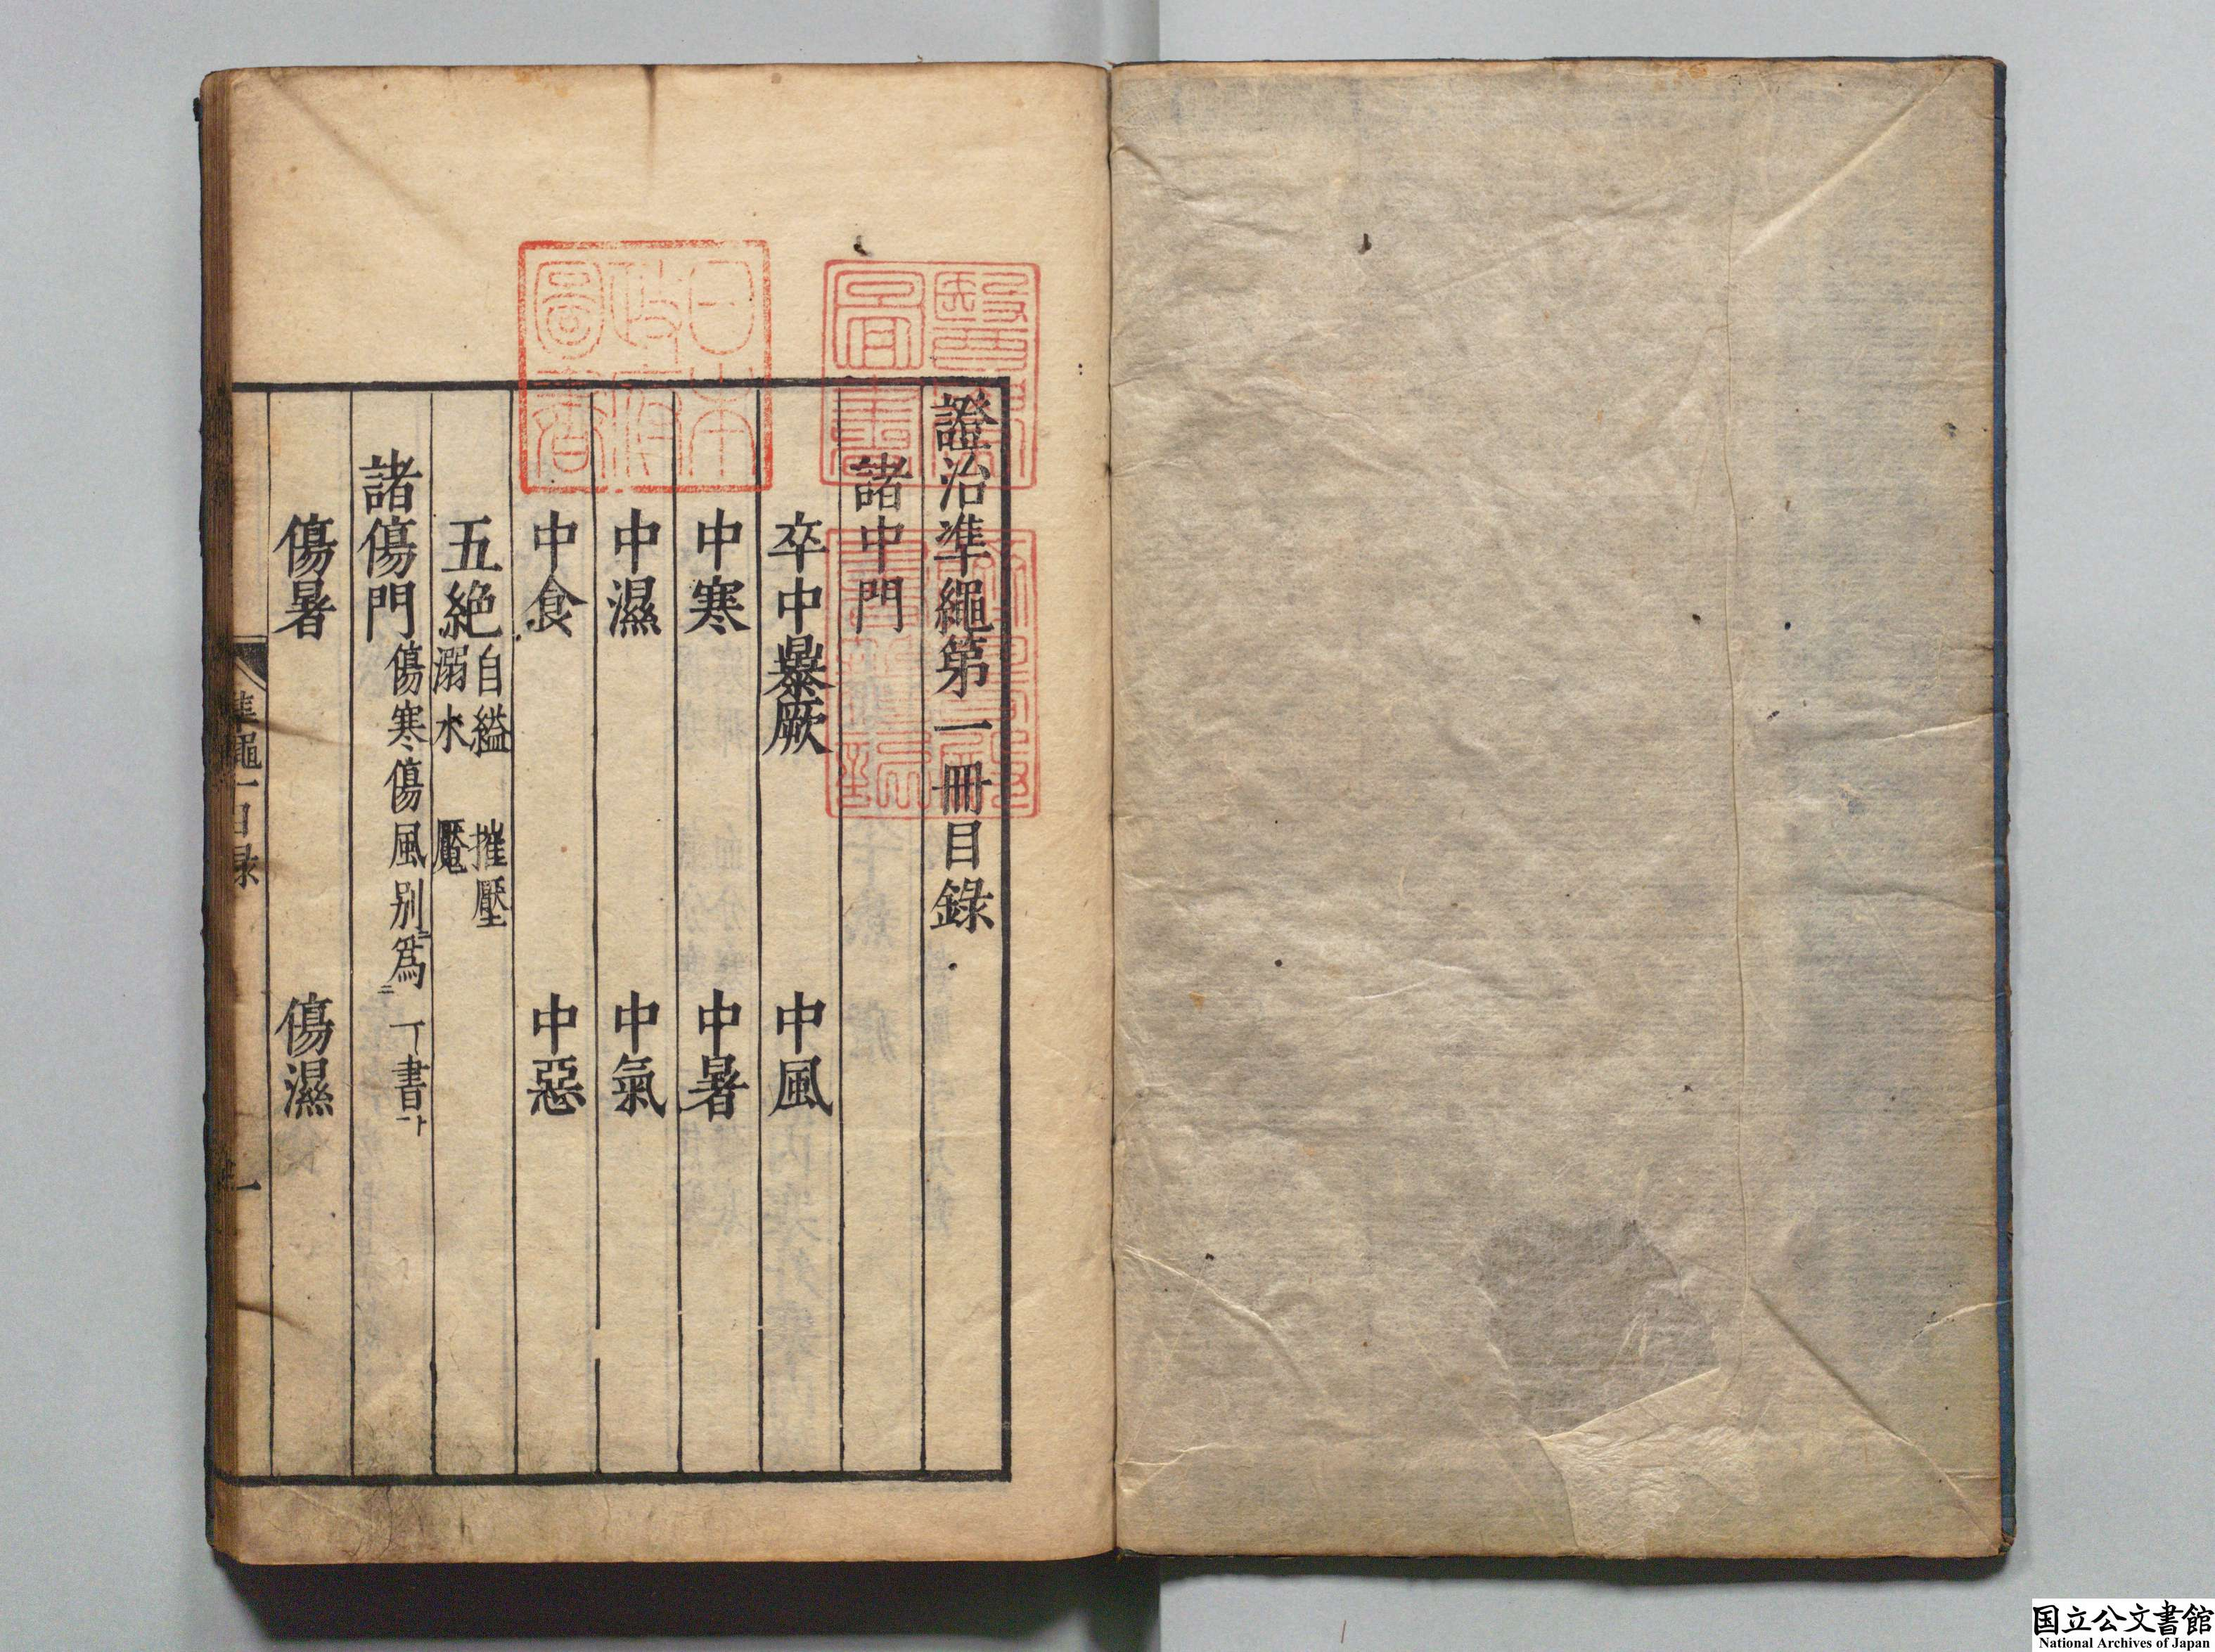 證治準繩第一冊目錄
諸中門
卒中暴厥 中風
中寒 中暑
中濕 中氣
中食 中惡
五絶 自縊 摧壓 溺水 魘
諸傷門 傷寒傷風別爲一書
傷暑 傷濕
準繩一目錄 一
日本政府圖書
醫學圖書
国立公文書館
National Archives of Japan